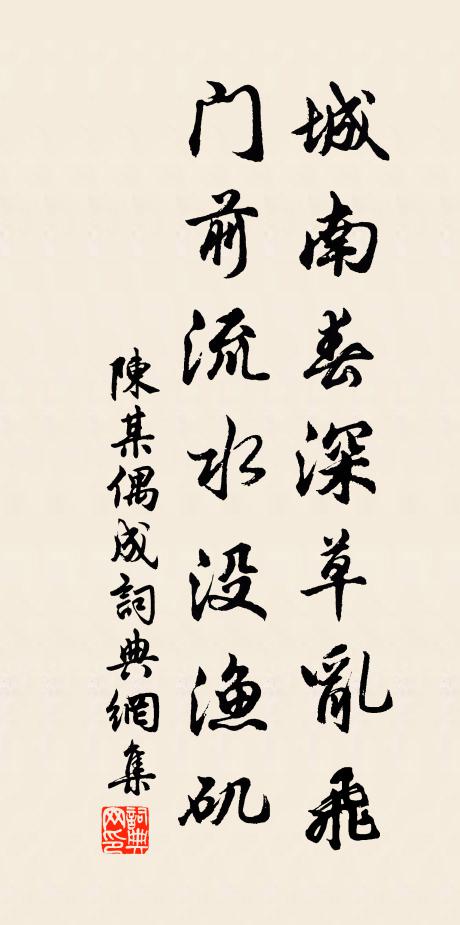 城南春深草亂飛
门前流水没漁矶
陳某偶成詞典網集
詞典网印